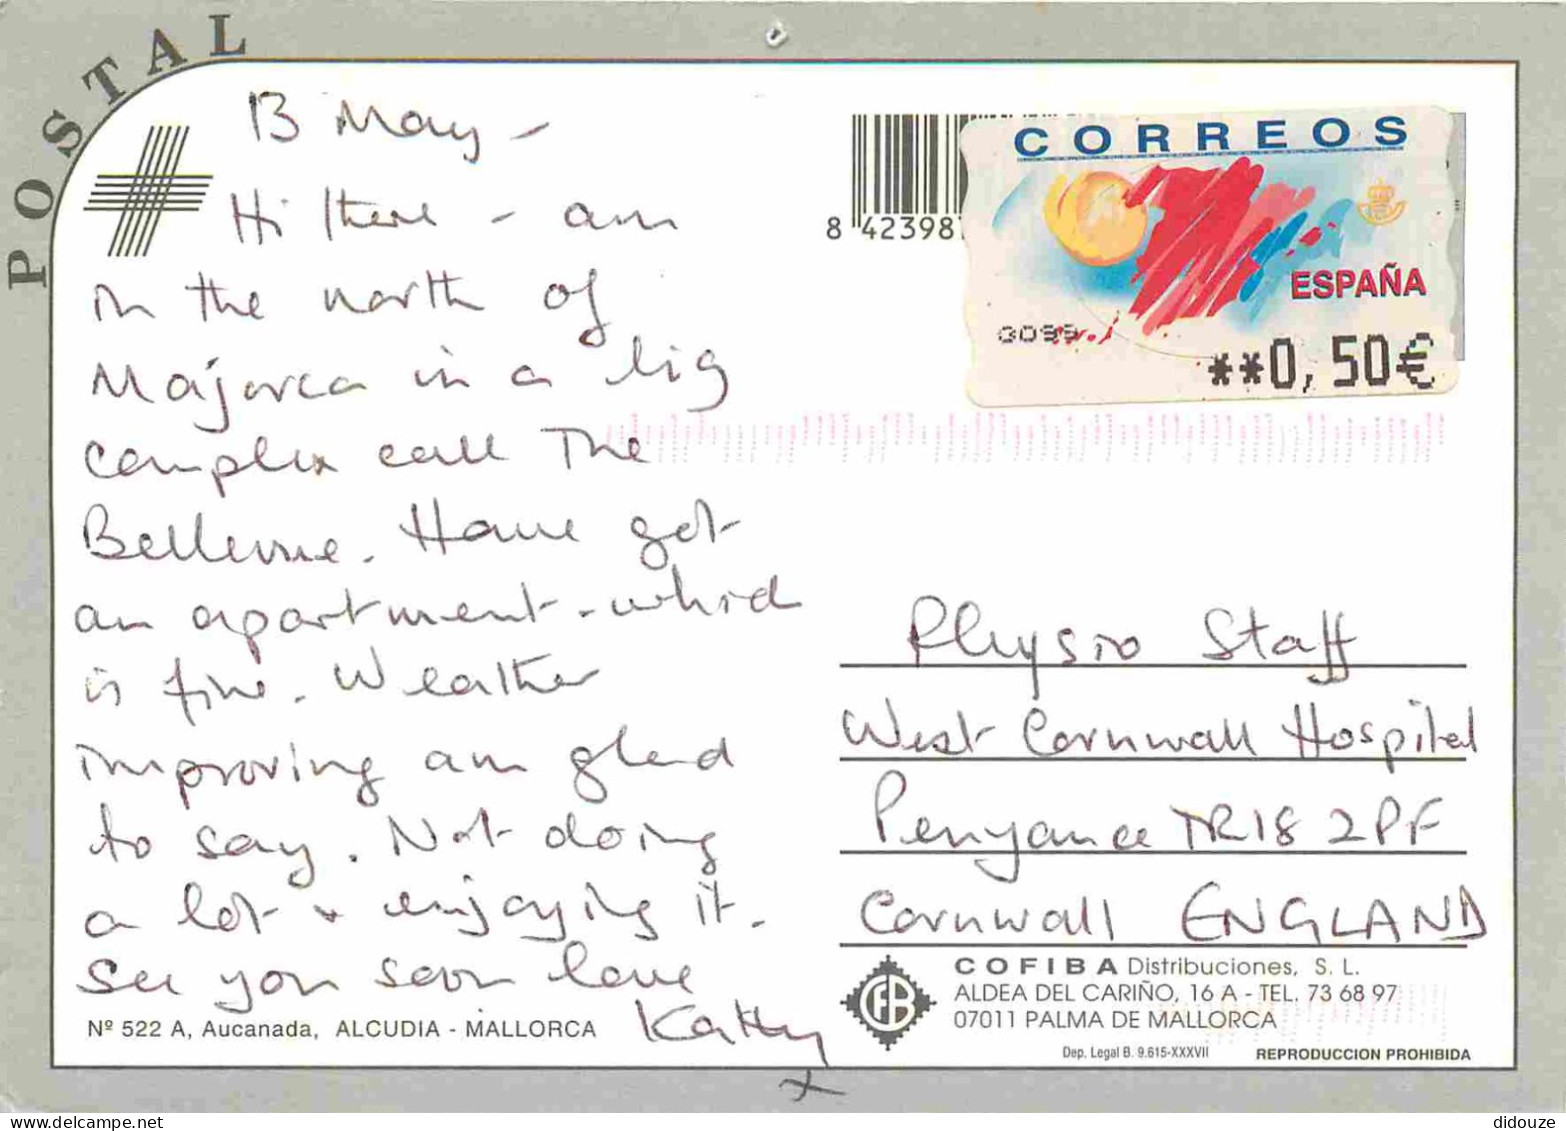 POSTAL
13 May -
Hi there - am
in the north of
Majorca in a big
complex call The
Bellevue. Have got
an apartment - which
is fine. Weather
improving am glad
to say. Not doing
a lot + enjoying it.
See you soon love
Kathy
x
Nº 522 A, Aucanada, ALCUDIA - MALLORCA
8 42398
CORREOS
ESPAÑA
0099
**0,50€
Physio Staff
West Cornwall Hospital
Penzance TR18 2PF
Cornwall ENGLAND
CFB
COFIBA Distribuciones, S. L.
ALDEA DEL CARIÑO, 16 A - TEL. 73 68 97
07011 PALMA DE MALLORCA
Dep. Legal B. 9.615-XXXVII
REPRODUCCION PROHIBIDA
didouze